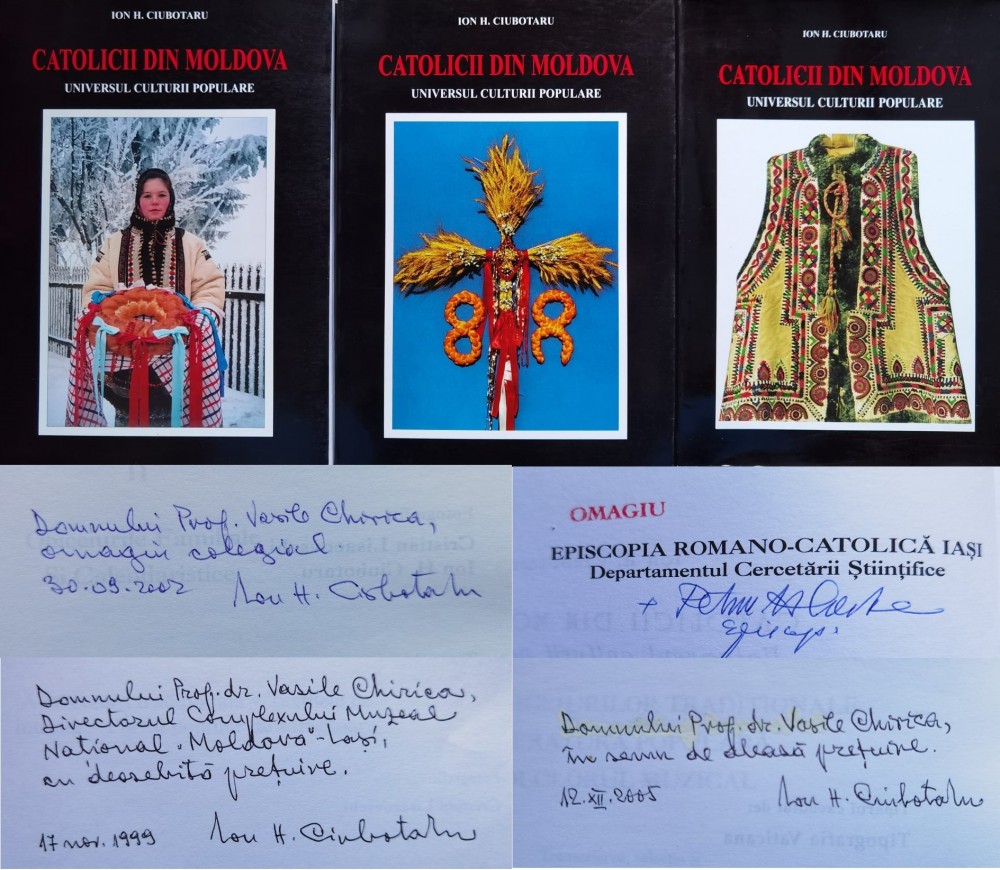 ION H. CIUBOTARU
CATOLICII DIN MOLDOVA
UNIVERSUL CULTURII POPULARE
ION H. CIUBOTARU
CATOLICII DIN MOLDOVA
UNIVERSUL CULTURII POPULARE
ION H. CIUBOTARU
CATOLICII DIN MOLDOVA
UNIVERSUL CULTURII POPULARE
Domnului Prof. Vasile Chirica,
omagiu colegial
30.09.2002 Ion H. Ciubotaru
OMAGIU
EPISCOPIA ROMANO-CATOLICĂ IAȘI
Departamentul Cercetării Științifice
+ Petru
Domnului Prof. dr. Vasile Chirica,
Directorul Complexului Muzeal
Național „Moldova"-Iași,
cu deosebită prețuire.
17 nov. 1999 Ion H. Ciubotaru
Domnului Prof. dr. Vasile Chirica,
în semn de aleasă prețuire.
12.XII.2005 Ion H. Ciubotaru